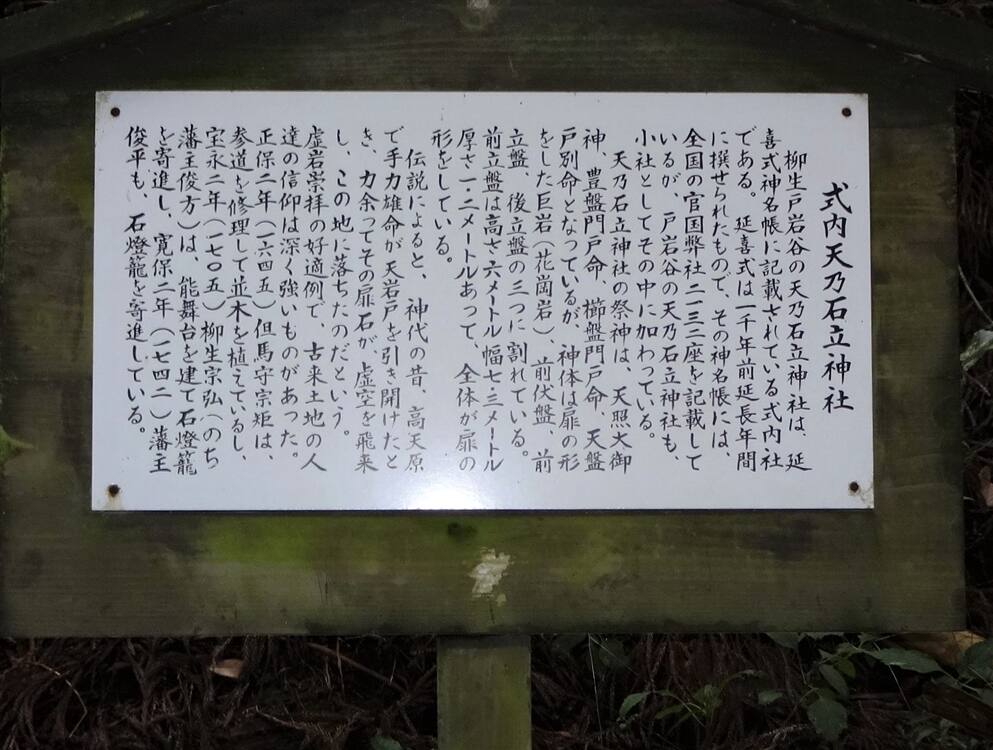 式内天乃石立神社
柳生戸岩谷の天乃石立神社は、延
喜式神名帳に記載されている式内社
である。延喜式は一千年前延長年間
に撰せられたもので、その神名帳には、
全国の官国弊社二一三二座を記載して
いるが、戸岩谷の天乃石立神社も、
小社としてその中に加わっている。
天乃石立神社の祭神は、天照大御
神、豊盤門戸命、櫛盤門戸命、天盤
戸別命となっているが、神体は扉の形
をした巨岩（花崗岩）、前伏盤、前
立盤、後立盤の三つに割れている。
前立盤は高さ六メートル幅七・三メートル
厚さ一・二メートルあって、全体が扉の
形をしている。
伝説によると、神代の昔、高天原
で手力雄命が天岩戸を引き開けたと
き、力余ってその扉石が、虚空を飛来
し、この地に落ちたのだという。
虚岩崇拝の好適例で、古来土地の人
達の信仰は深く強いものがあった。
正保二年（一六四五）但馬守宗矩は、
参道を修理して並木を植えているし、
宝永二年（一七〇五）柳生宗弘（のち
藩主俊方）は、能舞台を建て石燈籠
を寄進し、寛保二年（一七四二）藩主
俊平も、石燈籠を寄進している。